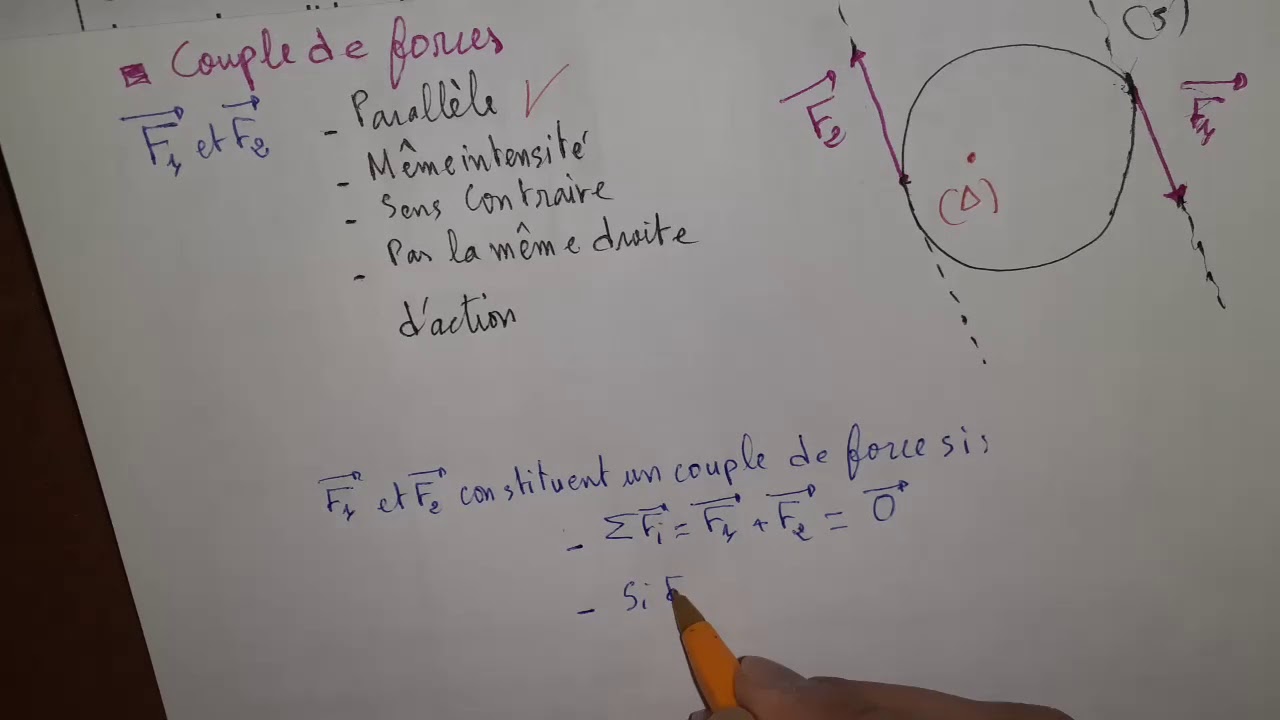 Couple de forces
F₁ et F₂
- Parallèle ✓
- Même intensité
- Sens Contraire
- Pas la même droite
d'action
F₂
(Δ)
(S)
F₁
F₁ et F₂ constituent un couple de force si:
- ΣFi = F₁ + F₂ = 0
- Si